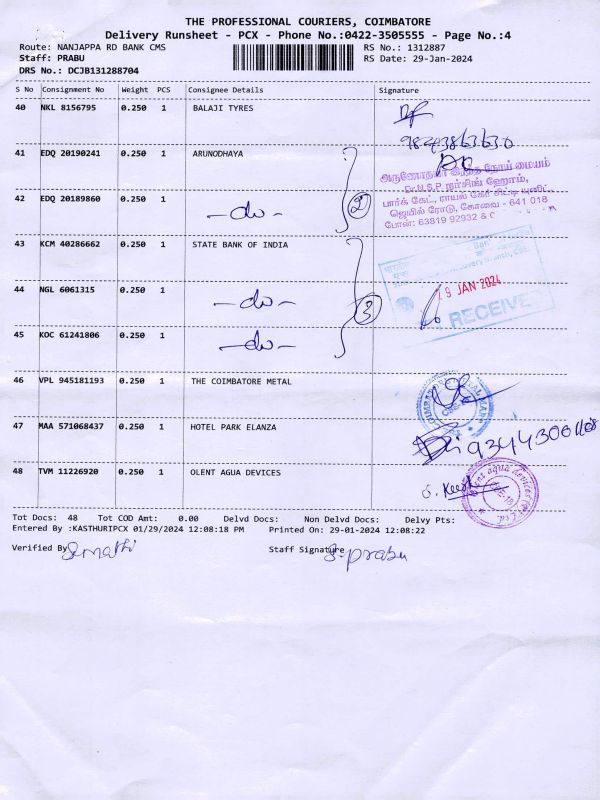 THE PROFESSIONAL COURIERS, COIMBATORE
Delivery Runsheet - PCX - Phone No.:0422-3505555 - Page No.:4
Route: NANJAPPA RD BANK CMS RS No.: 1312887
Staff: PRABU RS Date: 29-Jan-2024
DRS No.: DCJB131288704
S No Consignment No Weight PCS Consignee Details Signature
40 NKL 8156795 0.250 1 BALAJI TYRES
9843863630
41 EDQ 20190241 0.250 1 ARUNODHAYA
அருணோதயா இரத்த நோய் மையம்
Dr.N.S.P. நர்சிங் ஹோம்,
பார்க் கேட், ராயல் கேர் சிட்டி யூனிட்,
ஜெயில் ரோடு, கோவை - 641 018
போன்: 63819 92932 &
42 EDQ 20189860 0.250 1 -do- 2
43 KCM 40286662 0.250 1 STATE BANK OF INDIA
44 NGL 6061315 0.250 1 -do- 3
29 JAN 2024
RECEIVED
45 KOC 61241806 0.250 1 -do-
46 VPL 945181193 0.250 1 THE COIMBATORE METAL
47 MAA 571068437 0.250 1 HOTEL PARK ELANZA
48 TVM 11226920 0.250 1 OLENT AGUA DEVICES
Tot Docs: 48 Tot COD Amt: 0.00 Delvd Docs: Non Delvd Docs: Delvy Pts:
Entered By :KASTHURIPCX 01/29/2024 12:08:18 PM Printed On: 29-01-2024 12:08:22
Verified By Staff Signature
S. prabu